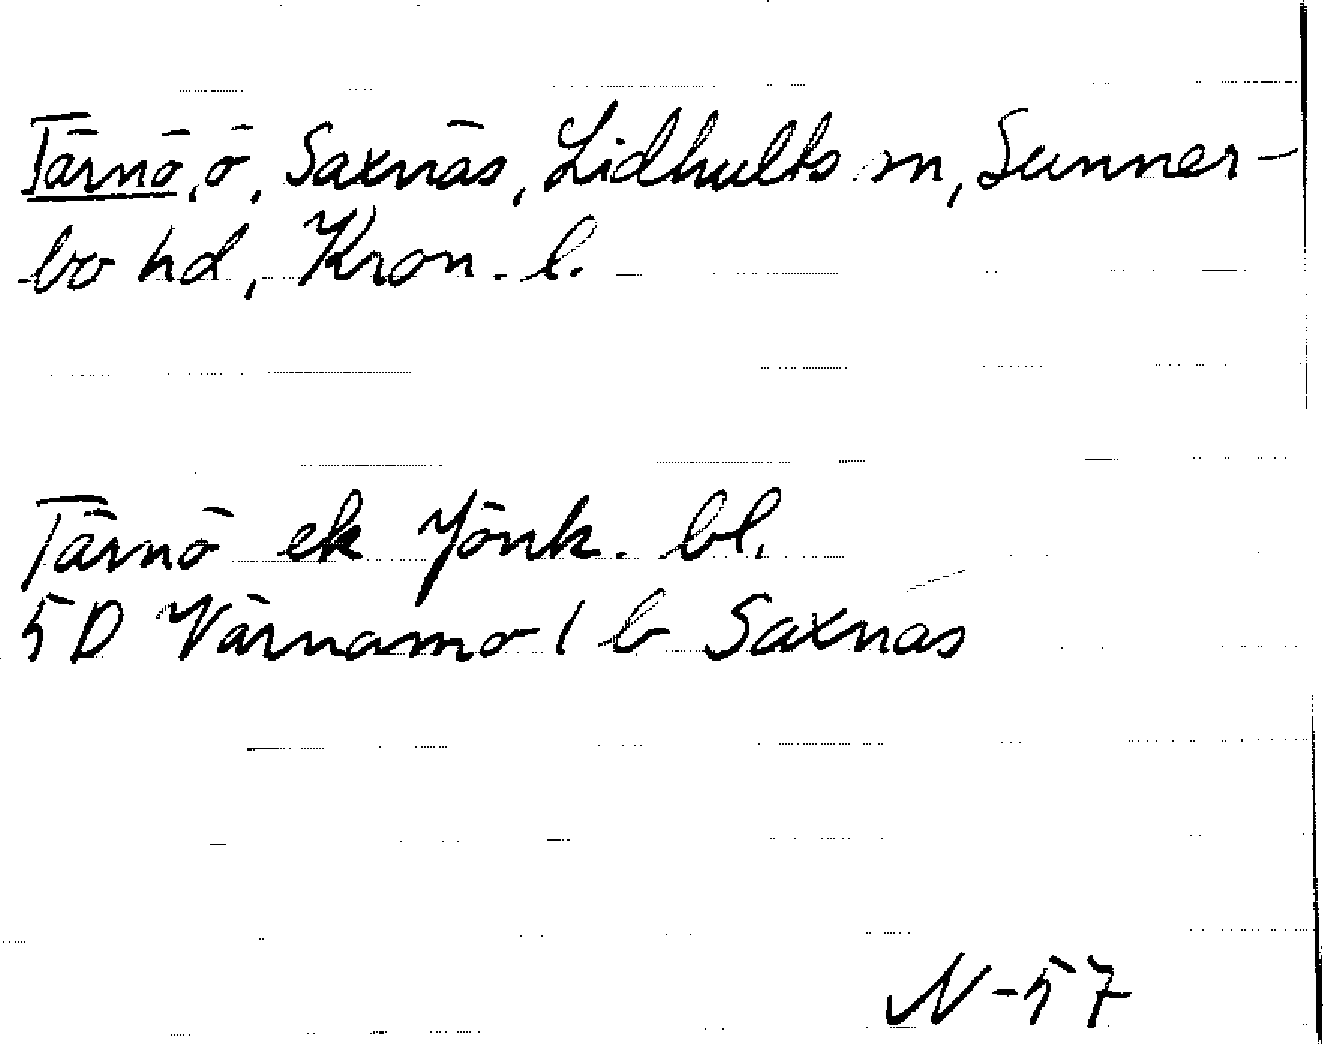 Tärnö, ö, Saxnäs, Lidhults sn, Sunner-
bo hd, Kron. l.
Tärnö ek Jönk. bl.
5D Värnamo / b Saxnäs
N-57